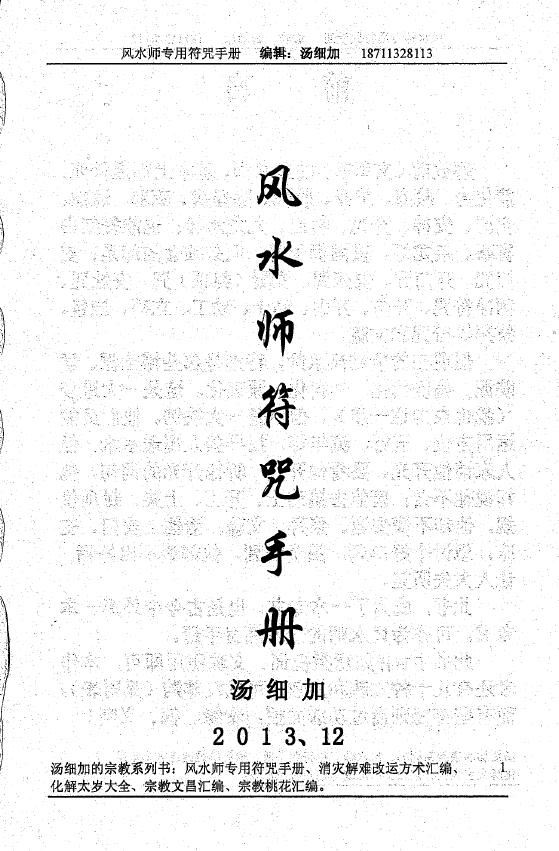 风水师专用符咒手册 编辑：汤细加 18711328113
风水师符咒手册
汤细加
2013、12
汤细加的宗教系列书：风水师专用符咒手册、消灾解难改运方术汇编、 1
化解太岁大全、宗教文昌汇编、宗教桃花汇编。